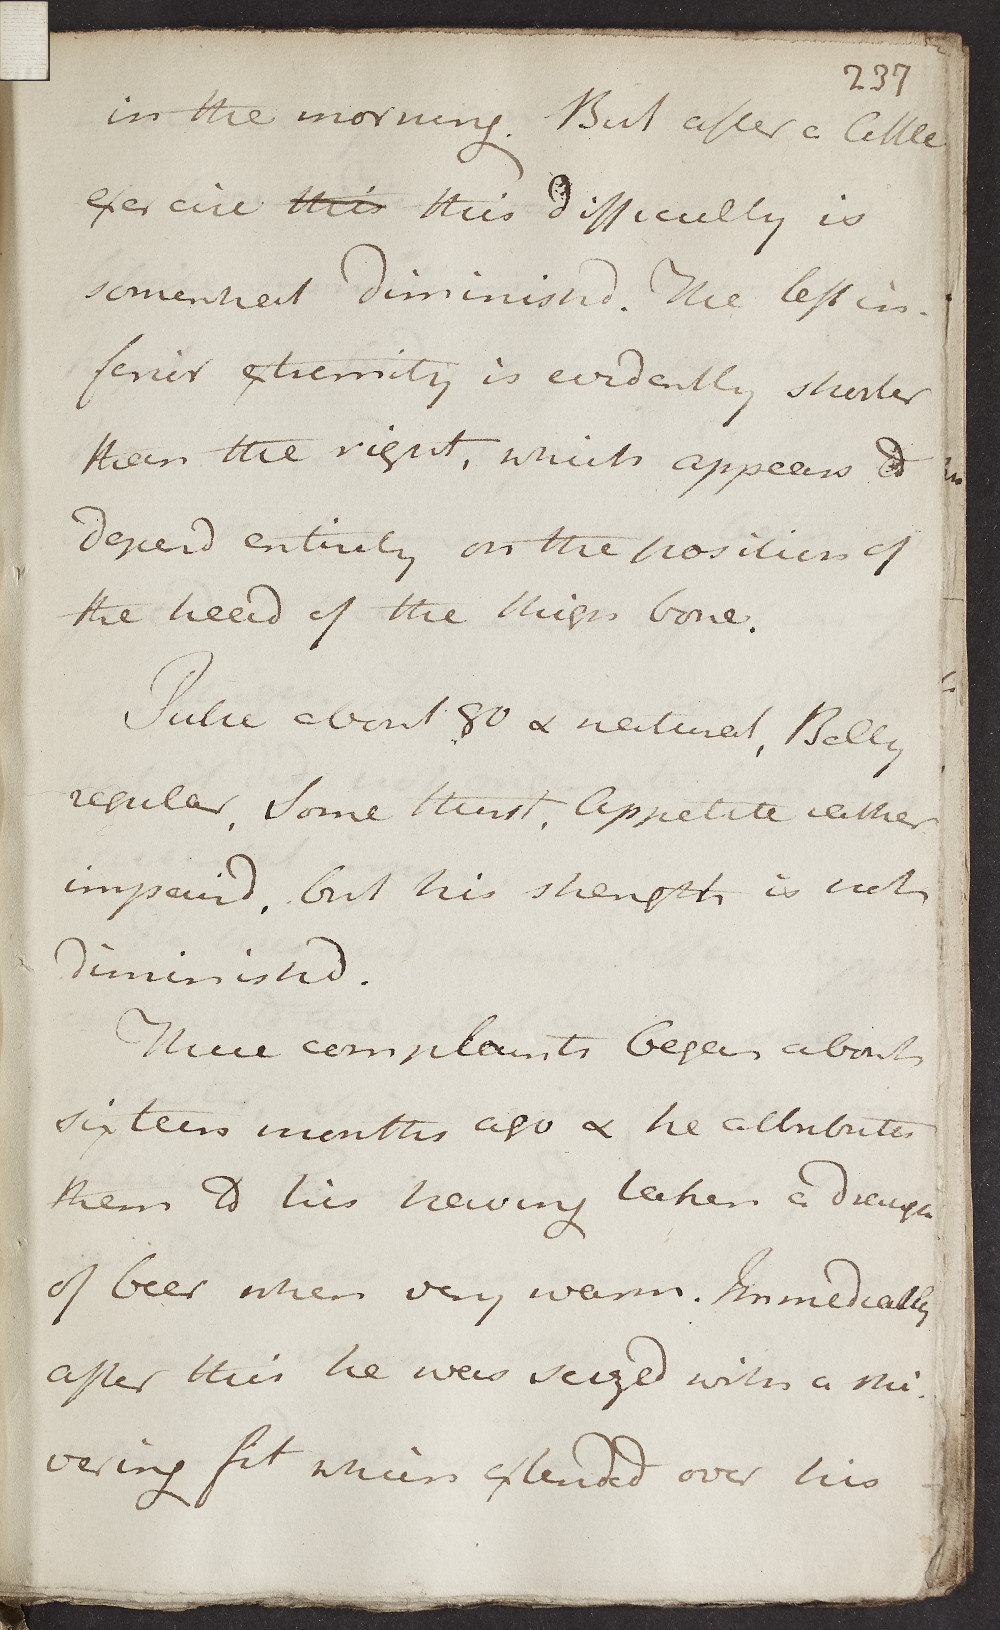 237
in the morning. But after a little
exercise this this difficulty is
somewhat diminishd. The left in-
ferior extremity is evidently shorter
than the right, which appears to
depend entirely on the position of
the head of the thigh bone.
Pulse about 80 & natural, Belly
regular, Some thirst, Appetite rather
impaird, but his strength is not
diminishd.
These complaints began about
sixteen months ago & he attributes
them to his having taken a draugh
of beer when very warm. Immediately
after this he was seized with a shi-
vering fit which extended over his